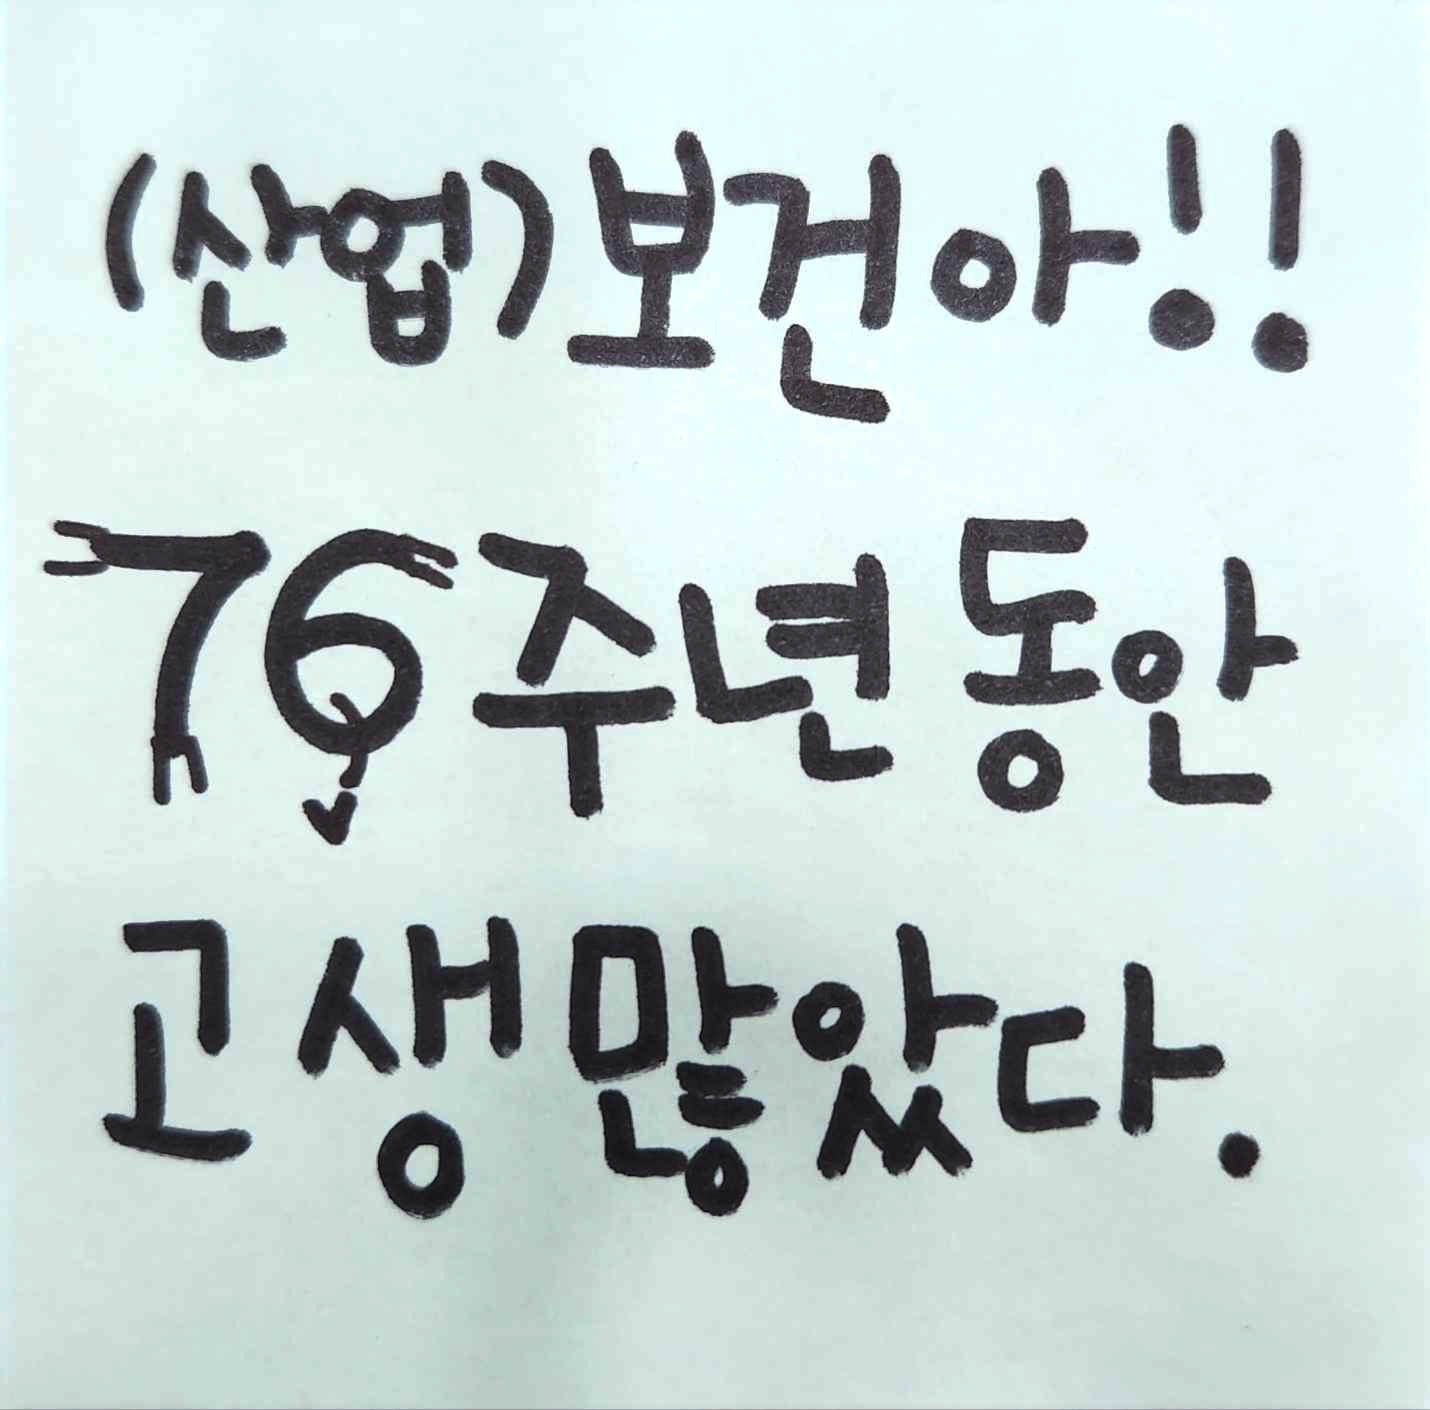 (산업)보건아!!
76주년 동안
고생 많았다.